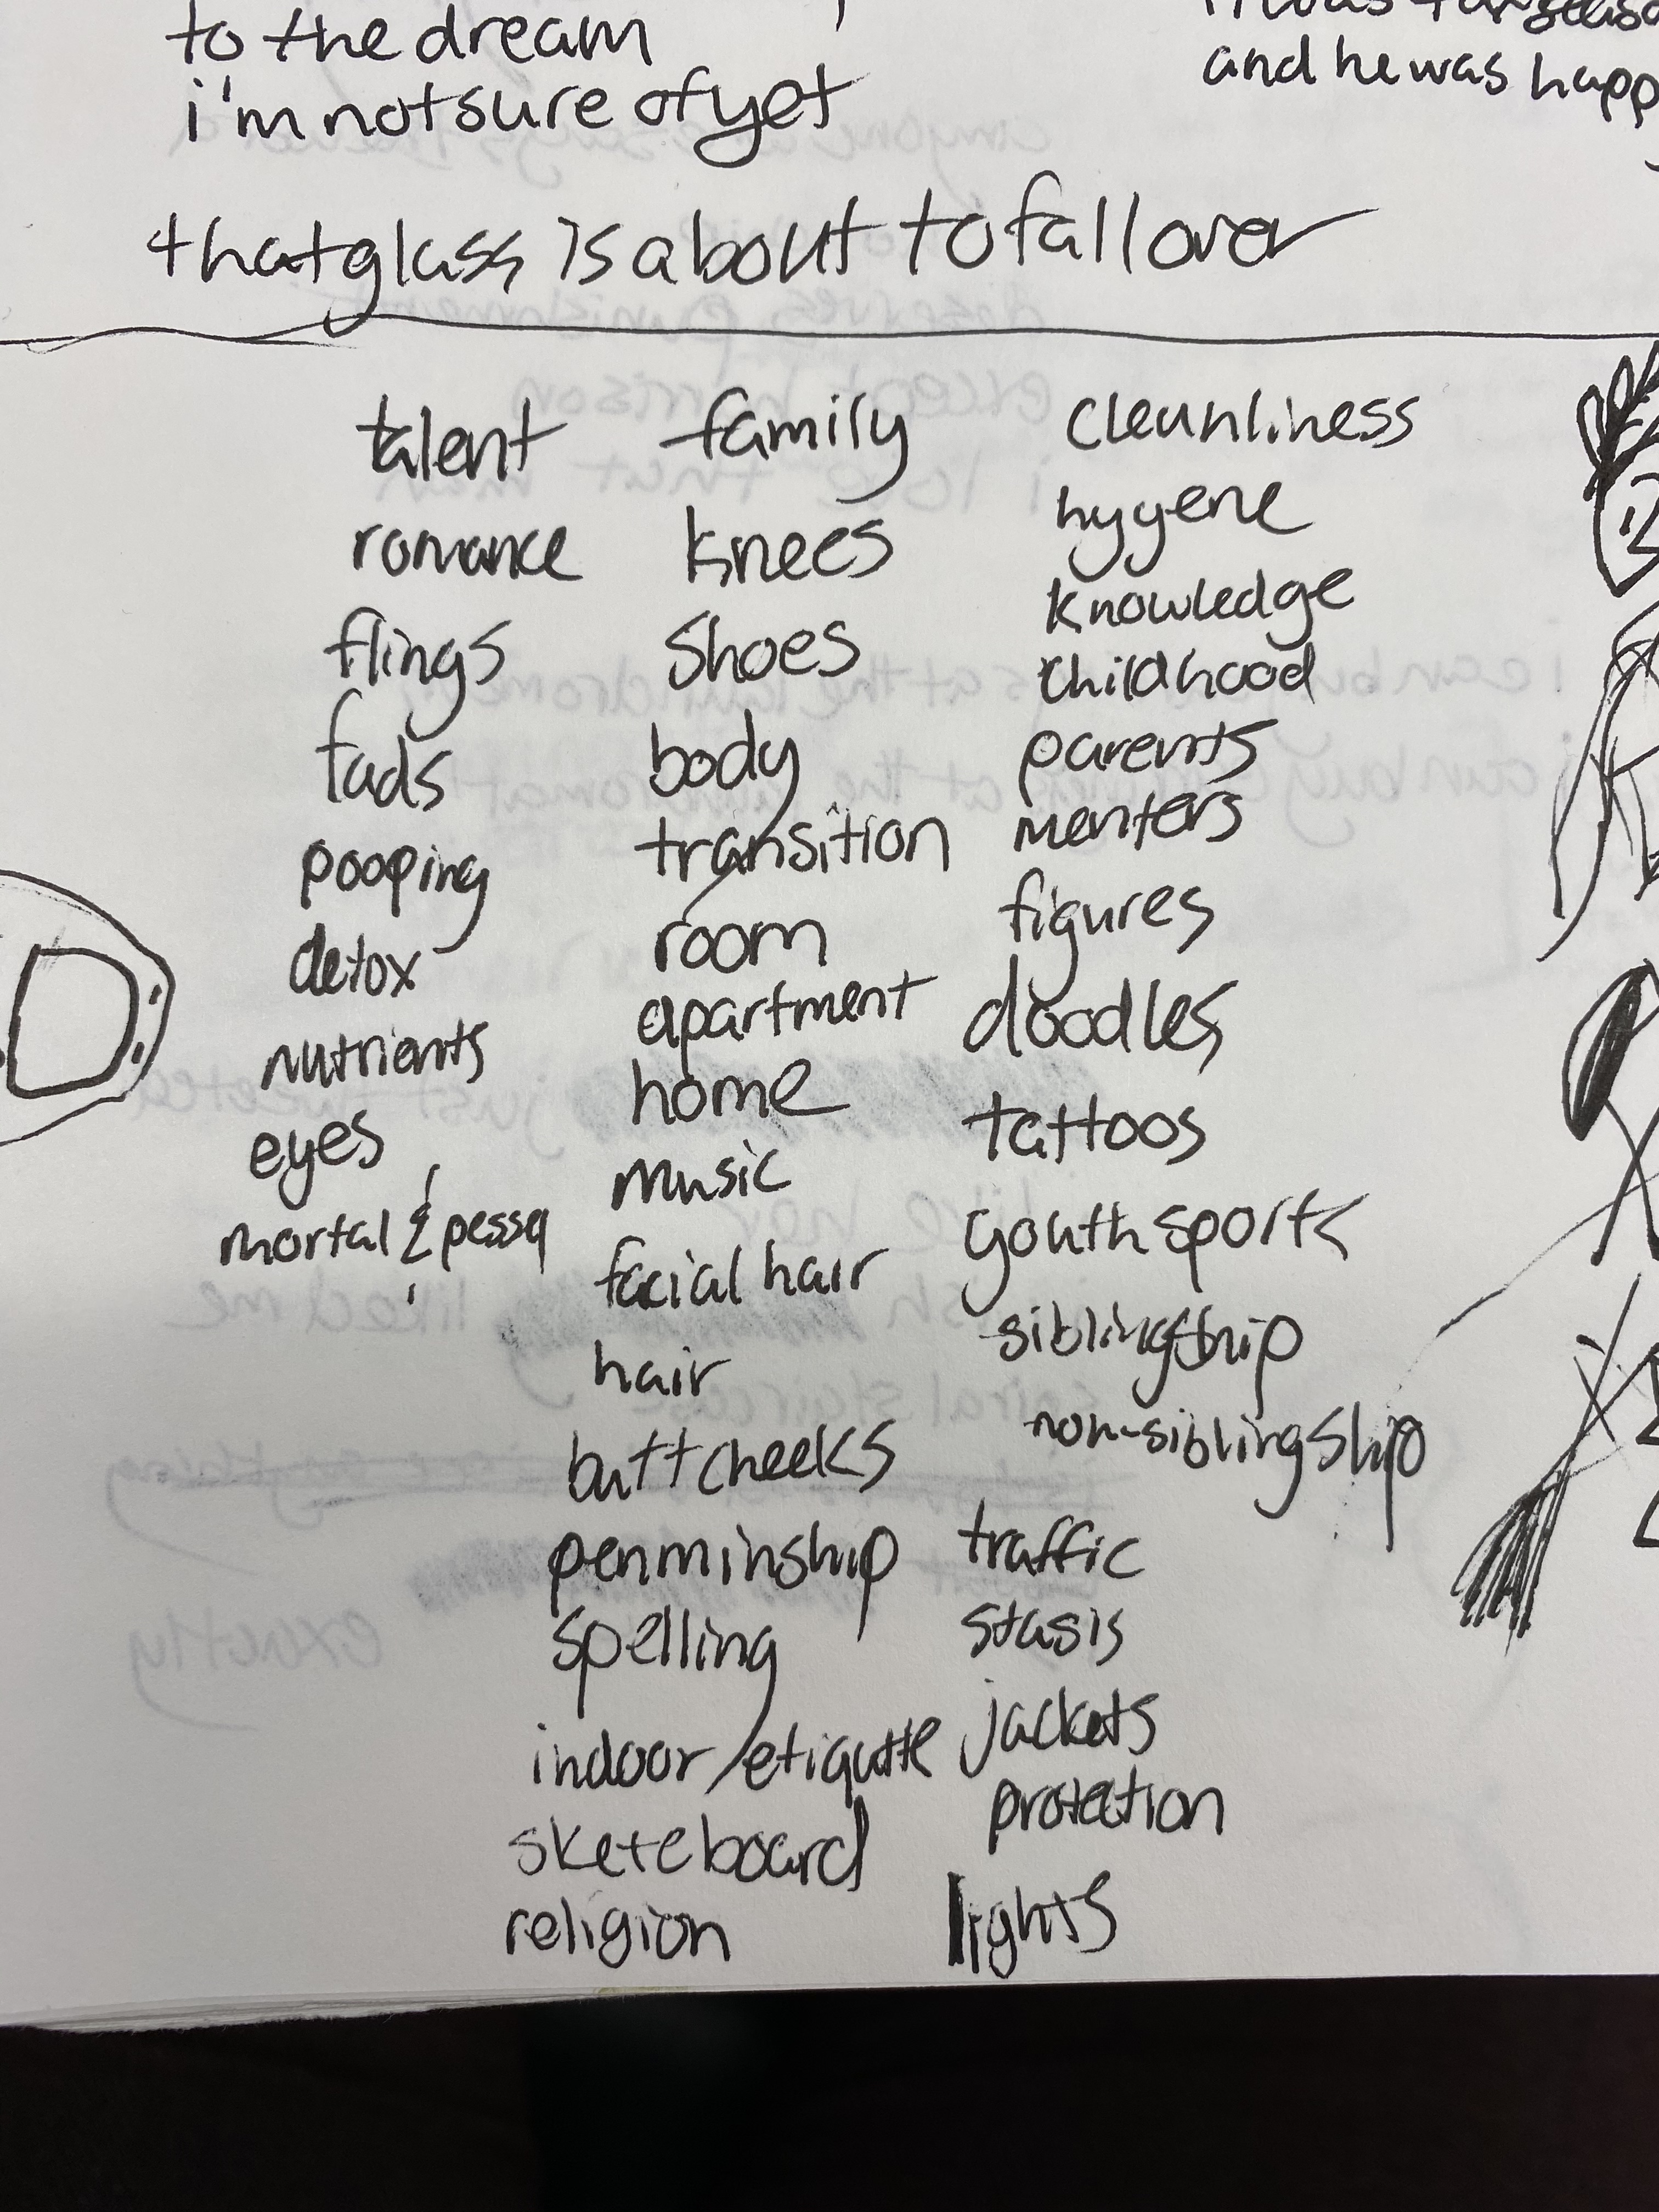 to the dream
i'm not sure of yet
and he was happ
that glass is about to fall over
talent
romance
flings
fads
pooping
detox
nutrients
eyes
mortal & pessq
family
knees
shoes
body
transition
room
apartment
home
music
facial hair
hair
buttcheeks
penminship
spelling
indoor/etiqutte
sketeboard
religion
cleanliness
hygene
knowledge
childhood
parents
menters
figures
doodles
tattoos
youth sports
siblingship
non-siblingship
traffic
stasis
jackets
protection
lights